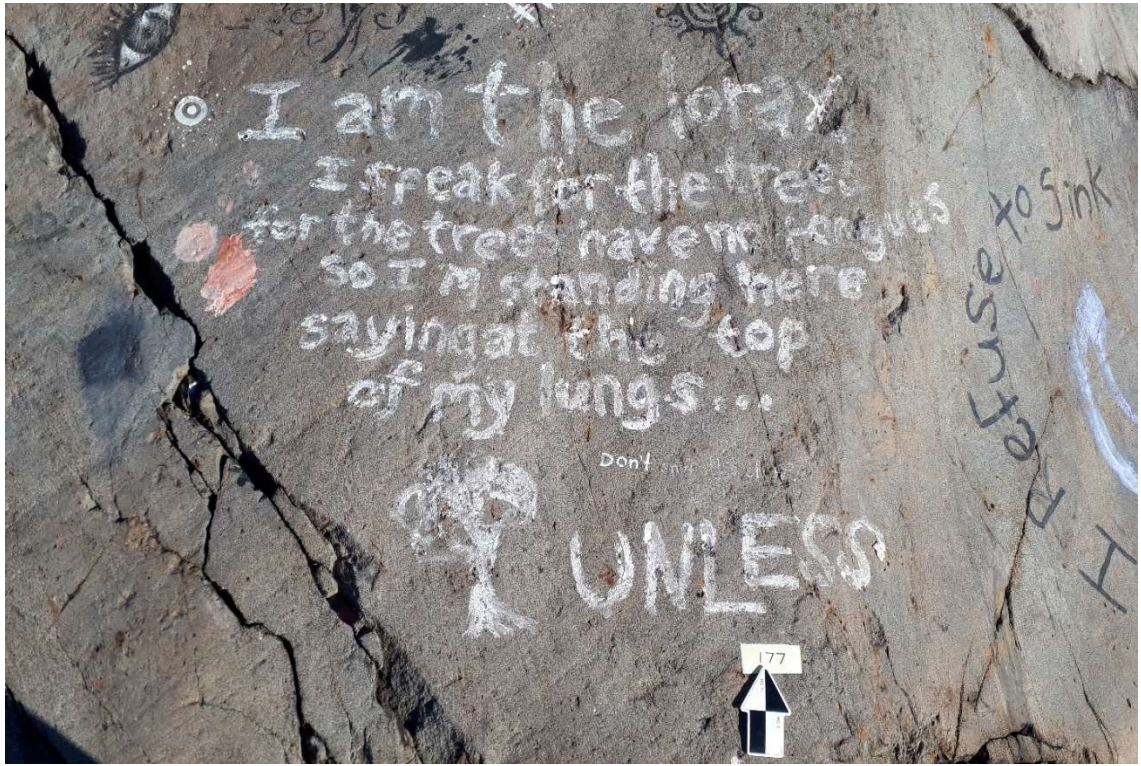 I am the lorax
I speak for the trees
for the trees have no tongues
so I'm standing here
saying at the top
of my lungs...
Don't
UNLESS
I refuse to sink
177